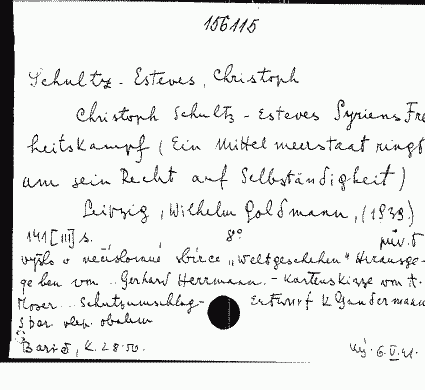 156115
Schultz-Esteves, Christoph
Christoph Schultz-Esteves Syriens Frei
heitskampf (Ein Mittelmeerstaat ringt
um sein Recht auf Selbständigkeit)
Leipzig, Wilhelm Goldmann, (1939)
141 [III] s. 8° pův. b
vyšlo v nečíslované sbírce „Weltgeschehen" Herausge-
geben von .. Gerhard Herrmann. - Kartenskizze von A.
Moser .. Schutzumschlag- Entwurf K Gundermann
S pap. obalem
K. 28.50. 6.V.41.